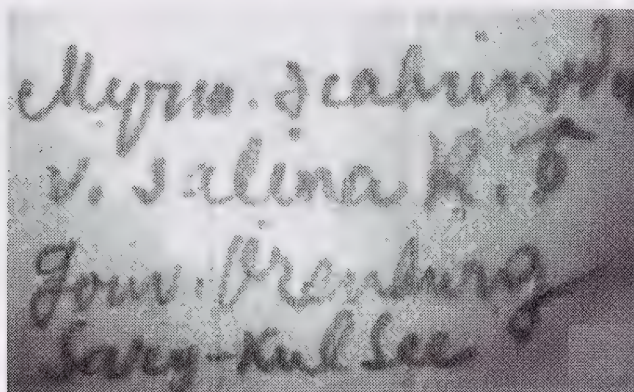 Myrm. scabrinod.
v. salina R.
Gouv. Orenburg
Sary-Kul See